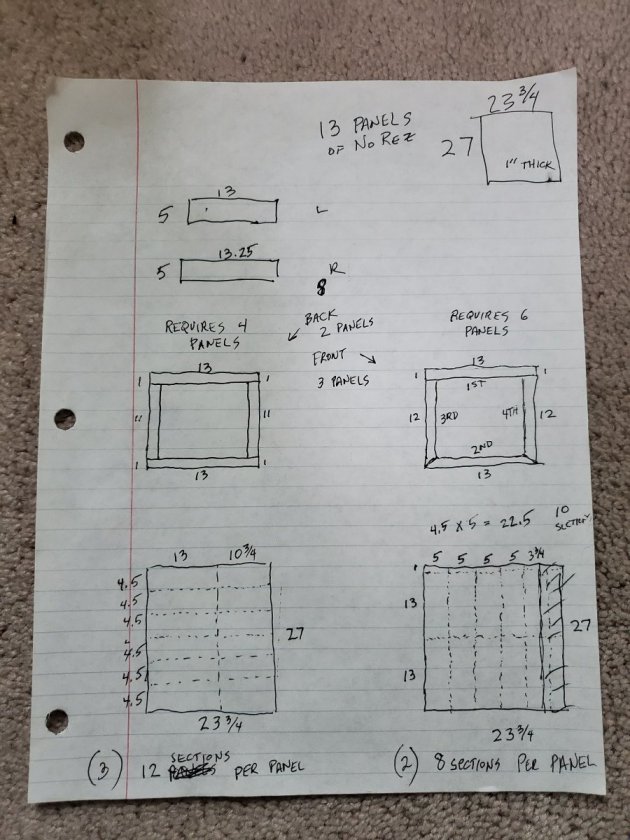 23 3/4
13 PANELS
OF NO REZ
27
1" THICK
13
5
L
13.25
5
R
8
REQUIRES 4
PANELS
BACK
2 PANELS
FRONT
3 PANELS
REQUIRES 6
PANELS
13
1 1
11 11
1 1
13
13
1 1
1ST
12 3RD 4TH 12
2ND
13
4.5 X 5 = 22.5
10
13 10 3/4
4.5
4.5
4.5
4.5
4.5
4.5
27
23 3/4
5 5 5 5 3 3/4
13
13
27
23 3/4
(3) 12 SECTIONS PER PANEL
(2) 8 SECTIONS PER PANEL